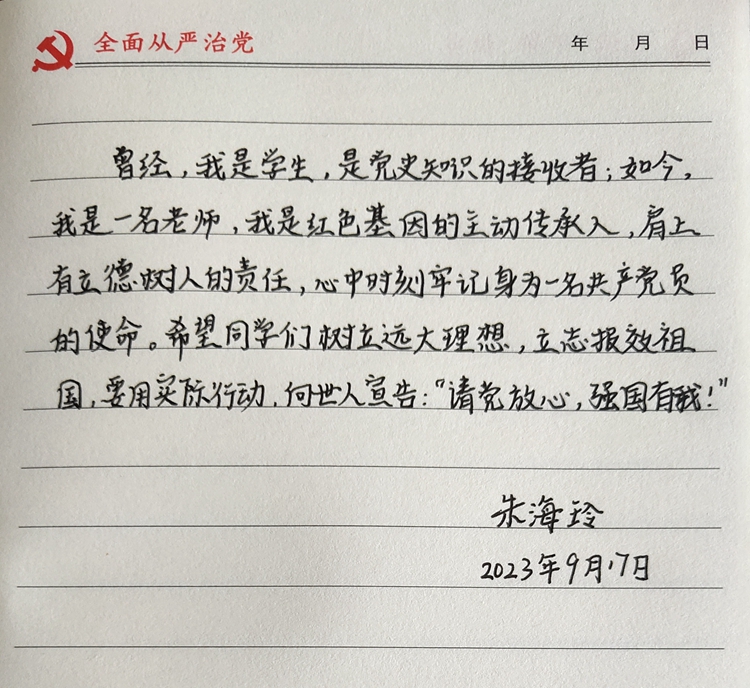 全面从严治党
年 月 日
曾经，我是学生，是党史知识的接收者；如今，
我是一名老师，我是红色基因的主动传承人，肩上
有立德树人的责任，心中时刻牢记身为一名共产党员
的使命。希望同学们树立远大理想，立志报效祖
国，要用实际行动，向世人宣告：“请党放心，强国有我！”
朱海玲
2023年9月17日